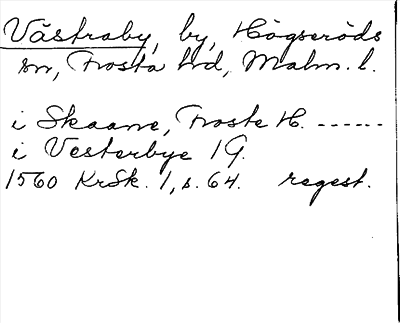 Västraby, by, Högseröds
sn, Frosta hd, Malm. l.
i Skaane, Froste H. ------
i Vesterbye 1 G.
1560 KrSk. 1, s. 64. regest.